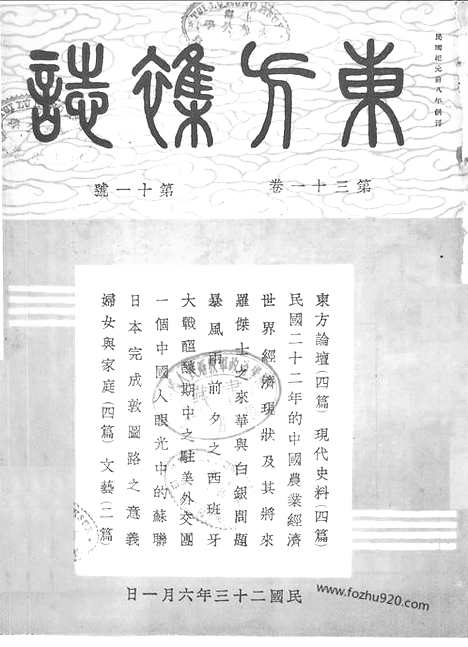 民國紀元前八年創刊
東方雜誌
第三十一卷
第十一號
東方論壇(四篇) 現代史料(四篇)
民國二十二年的中國農業經濟
世界經濟現狀及其將來
羅傑士之來華與白銀問題
暴風雨前夕之西班牙
大戰醞釀期中之駐美外交團
一個中國人眼光中的蘇聯
日本完成敦圖路之意義
婦女與家庭(四篇) 文藝(二篇)
民國二十三年六月一日
www.fozhu920.com